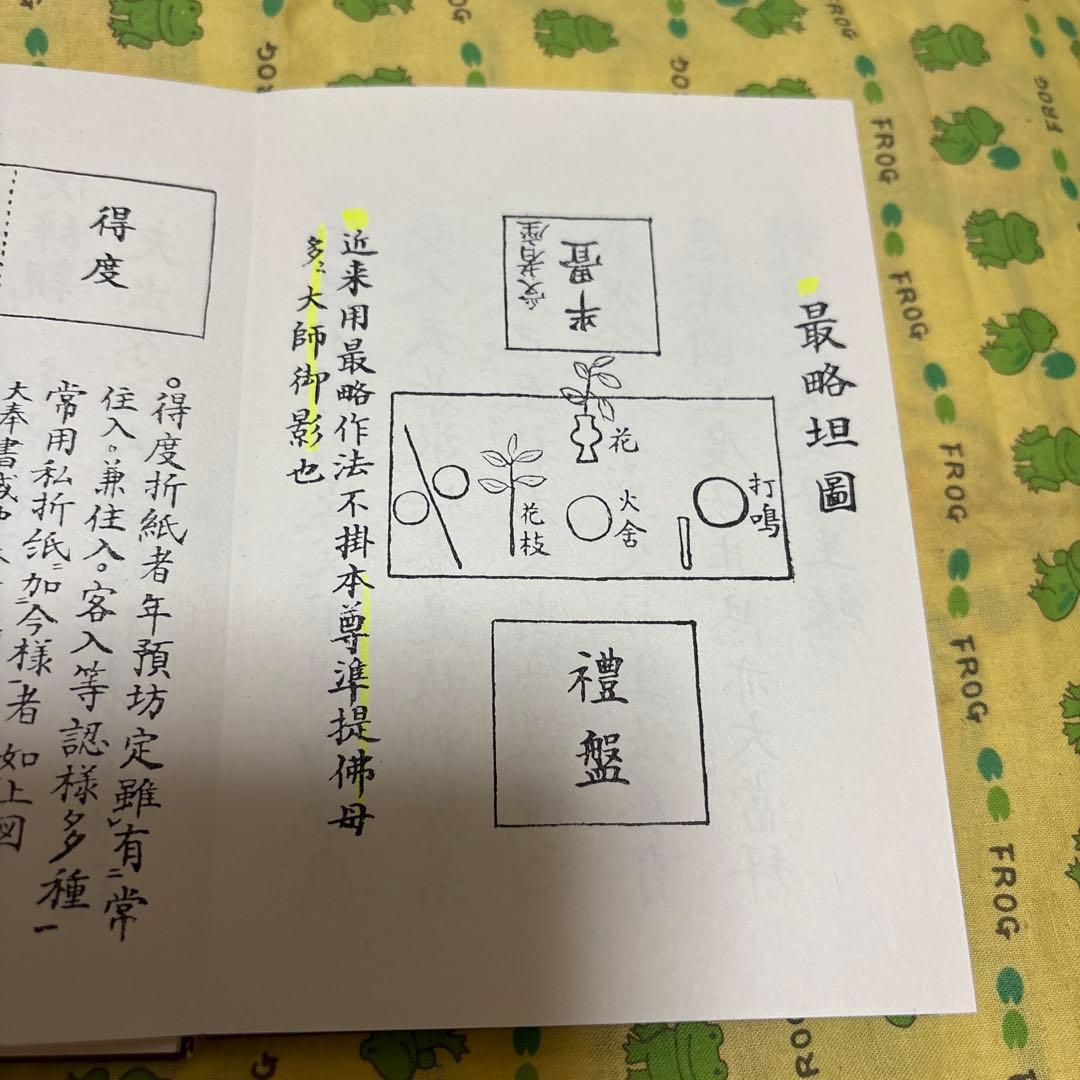 最略坦圖
半畳
受者座
花
打鳴
火舎
花枝
禮盤
近来用最略作法不掛本尊準提佛母
多ミ大師御影也
得度
○得度折紙者年預坊定雖有二常
住入。兼住入。客入等認様多種一
常用私折紙ニ加ニ今様一者如上図
大奉書或
FROG
FROG
FROG
FROG
FROG
FROG
FROG
FROG